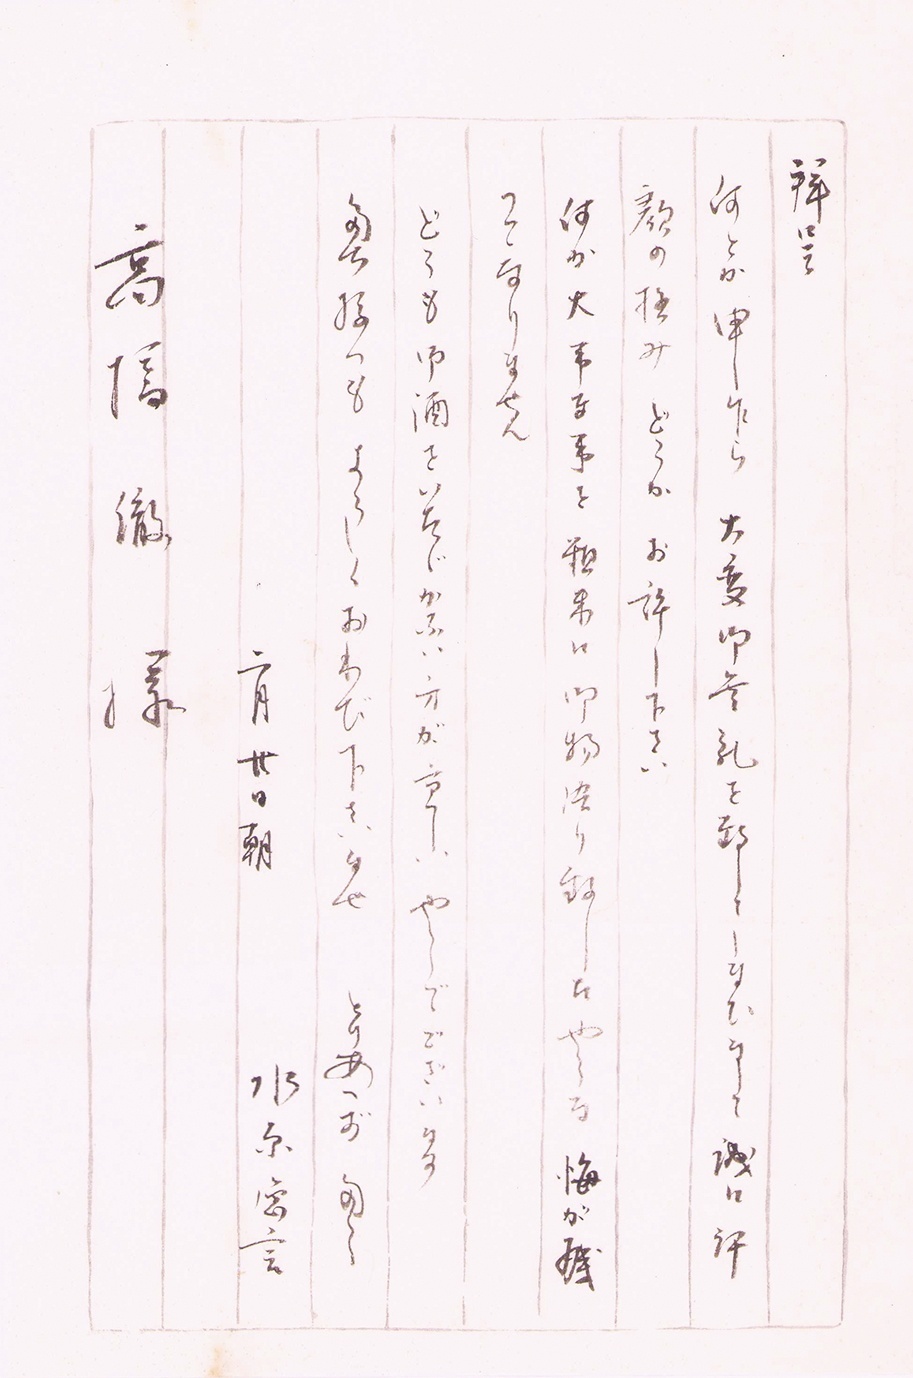 拝啓
何とか申し乍ら 大変御無礼を致してしまひまして 誠に汗
顔の極み どうか お許し下さい
何か大事な事を粗末に御物語り致した やうな 悔が残
つてなりません
どうも御酒をいたゞかない方が宜しい やうでございます
奥様にも よろしく おわび下さいませ とりあへず 匆々
二月廿日朝
水原
高橋徹様